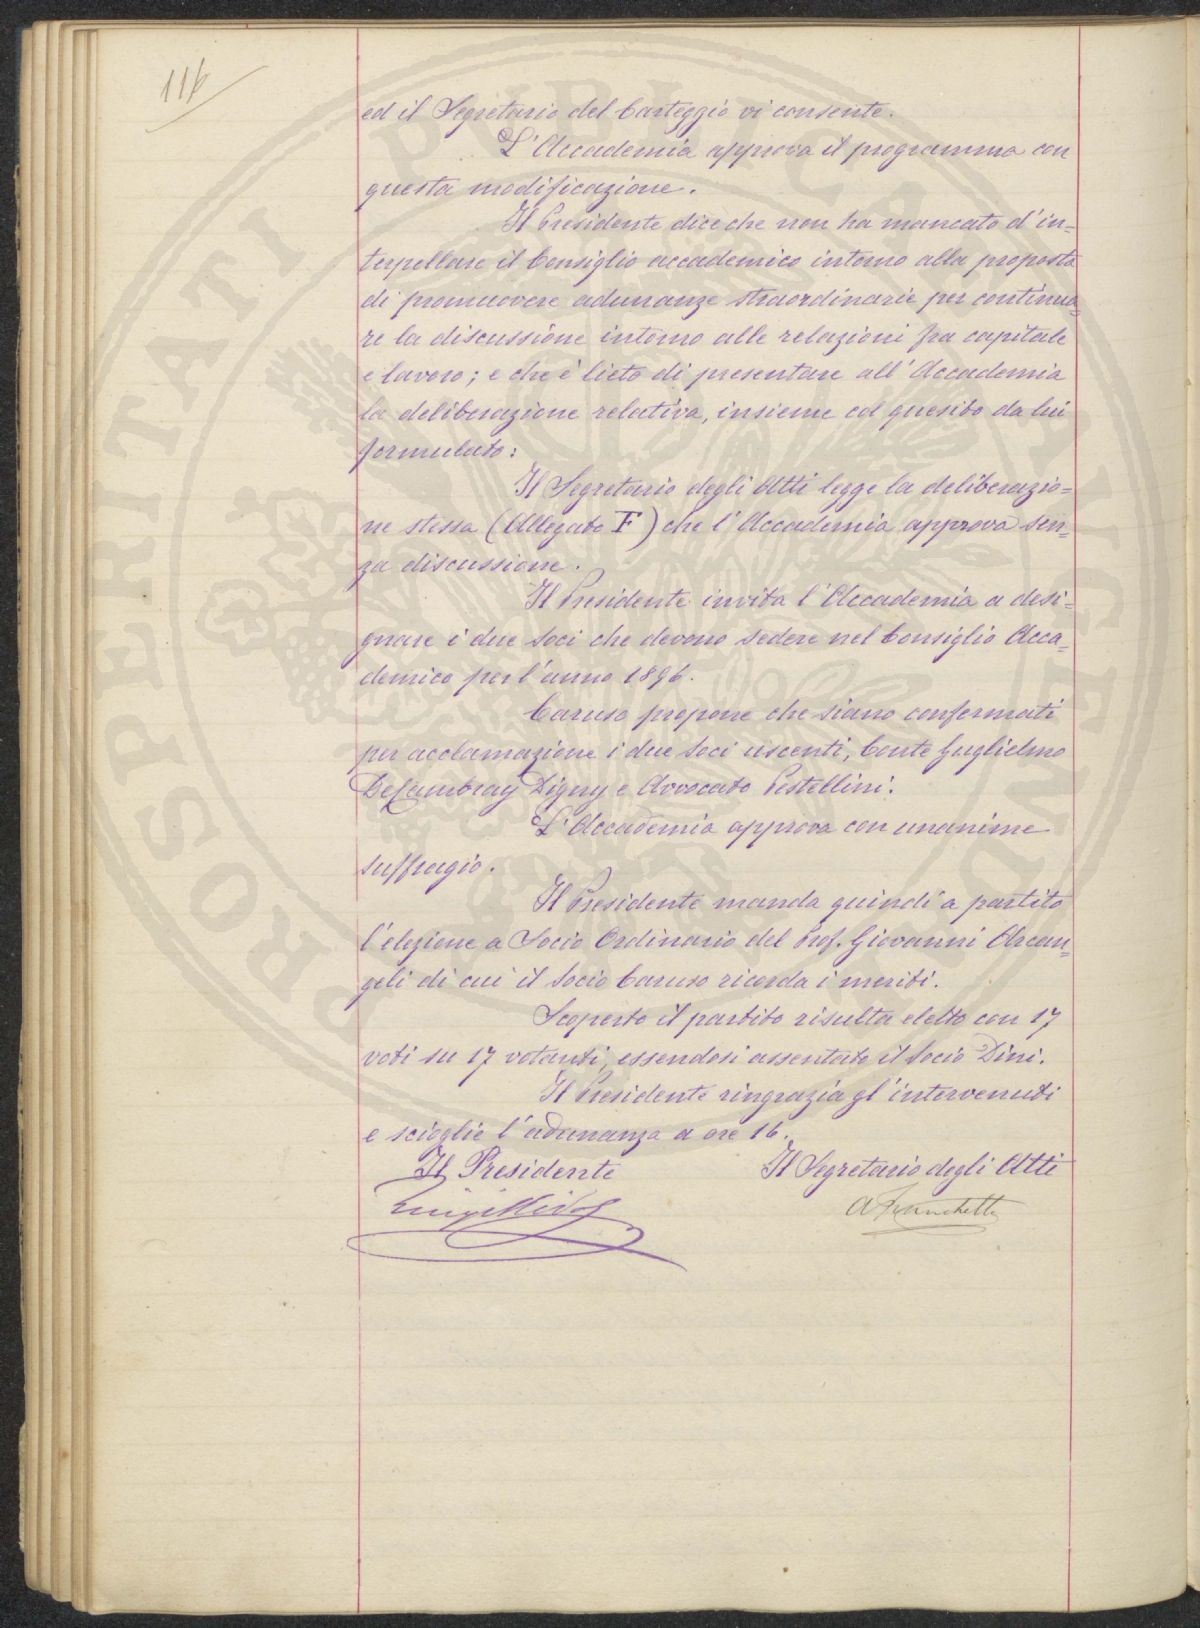 116
ed il Segretario del Carteggio vi consente.
L'Accademia approva il programma con
questa modificazione.
Il Presidente dice che non ha mancato d'in=
terpellare il Consiglio accademico intorno alla proposta
di promuovere adunanze straordinarie per continua=
re la discussione intorno alle relazioni fra capitale
e lavoro; e che è lieto di presentare all'Accademia
la deliberazione relativa, insieme col quesito da lui
formulato:
Il Segretario degli Atti legge la deliberazio=
ne stessa (Allegato F) che l'Accademia approva sen=
za discussione.
Il Presidente invita l'Accademia a desi=
gnare i due Soci che devono sedere nel Consiglio Acca=
demico per l'anno 1896.
Caruso propone che siano confermati
per acclamazione i due Soci uscenti, Conte Guglielmo
De Cambray Digny e Avvocato Pestellini.
L'Accademia approva con unanime
suffragio.
Il Presidente manda quindi a partito
l'elezione a Socio Ordinario del Prof. Giovanni Arcan=
geli di cui il Socio Caruso ricorda i meriti.
Scoperto il partito risulta eletto con 17
voti su 17 votanti, essendosi assentato il Socio Dini.
Il Presidente ringrazia gl'intervenuti
e scioglie l'adunanza a ore 16.
Il Presidente Il Segretario degli Atti
Luigi Ridolfi A Franchetti
PROSPERITATI PUBLICAE AUGENDAE